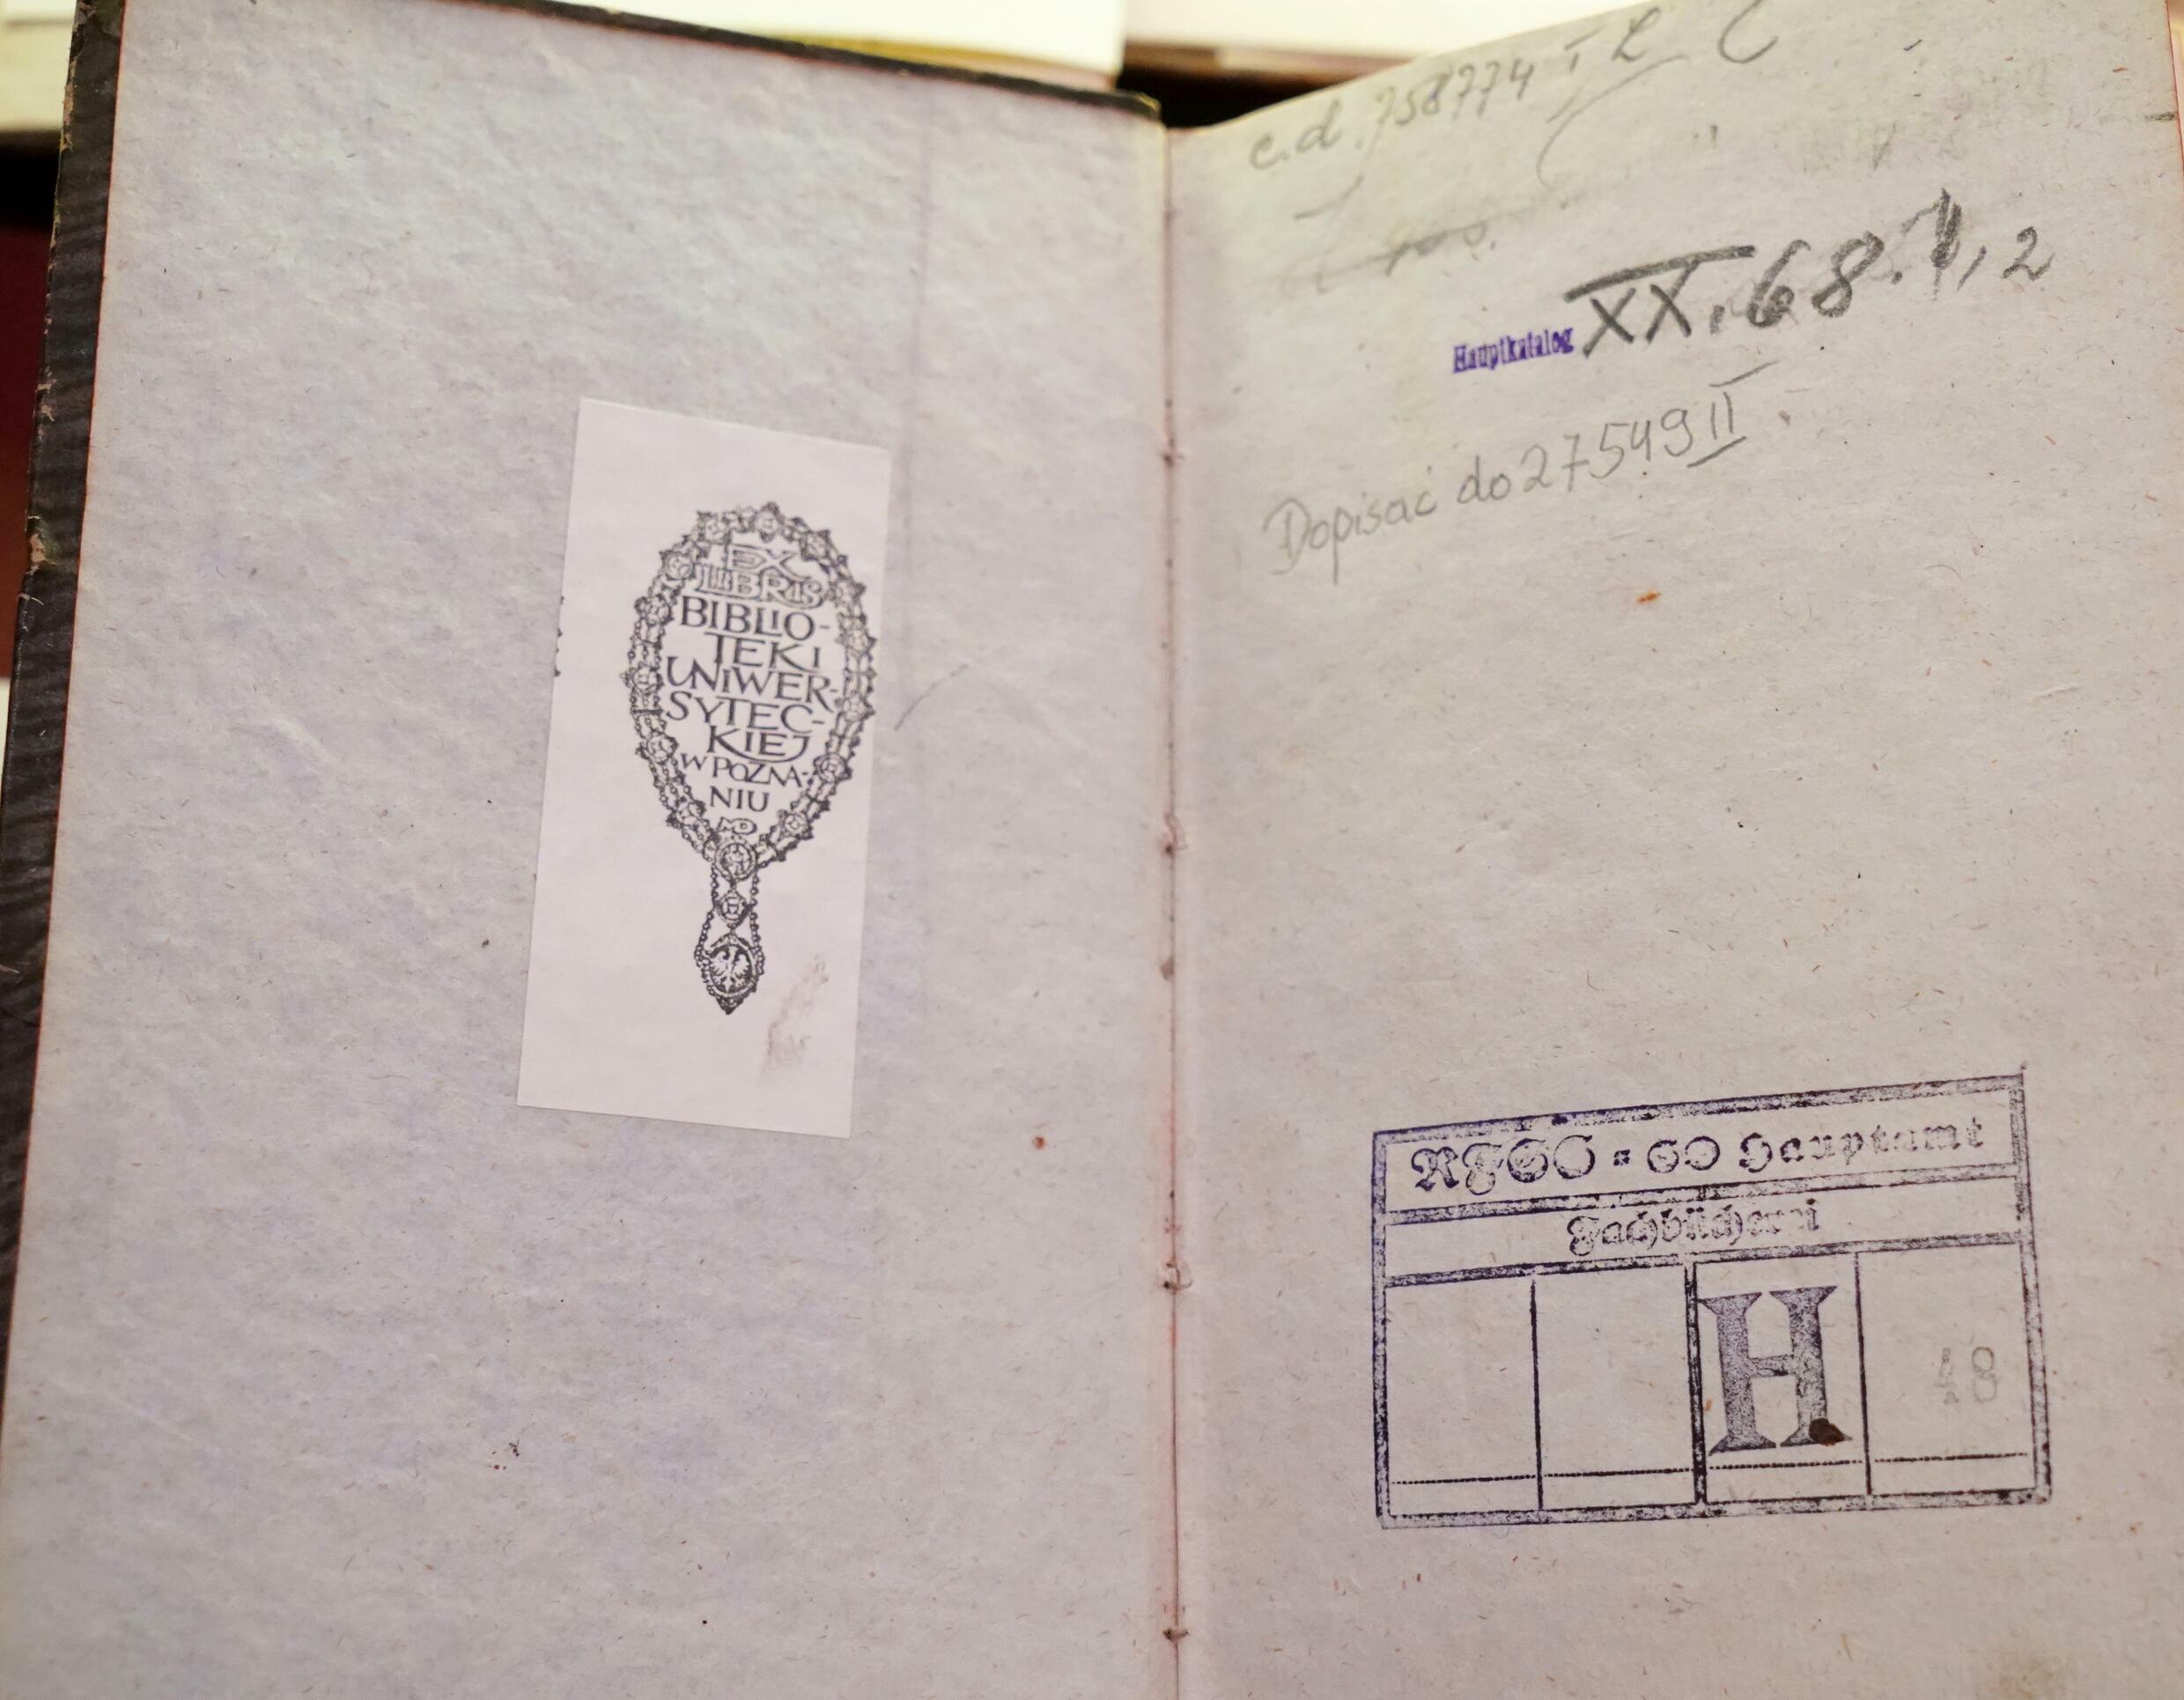 EX
LIBRIS
BIBLIO-
TEKI
UNIWER-
SYTEC-
KIEJ
W POZNA-
NIU
c.d. 758774 I
Hauptkatalog XX. 68. 1, 2
Dopisać do 27549 II.
RFSS = SD Hauptamt
Fachbücherei
H